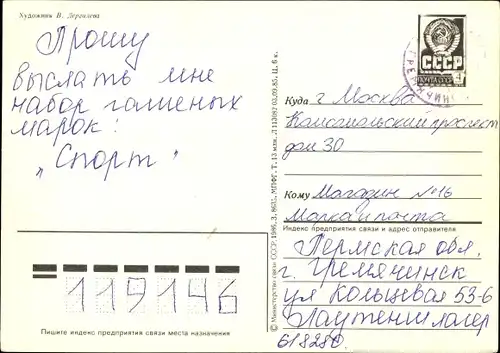 Художник В. Дергилев
Прошу
выслать мне
набор гашеных
марок:
"Спорт"
СССР
ПОЧТА
Куда г Москва
Комсомольский проспект
дом 30
Кому Магазин №16
Марка и почта
Индекс предприятия связи и адрес отправителя
Пермская обл.
г. Гремячинск
ул Кольцевая 53-6
Лаутеншлагер
618280
119146
Пишите индекс предприятия связи места назначения
© Министерство связи СССР, 1986. З. 8635. МПФГ. Т. 13 млн. Л 113087 03.09.85. Ц. 6 к.